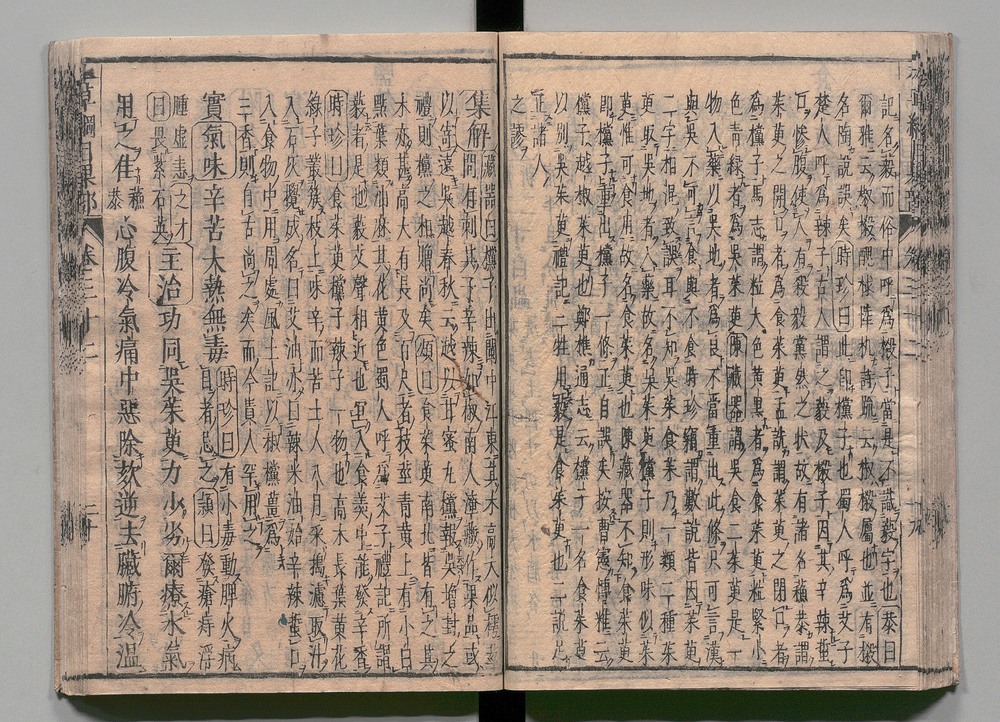 記名藙而俗中呼爲樧子當是不識藙字也恭曰
爾雅云椒樧醜梂陸机詩疏云椒樧屬也並有樧
名陶說誤矣時珍曰此即欓子也蜀人呼爲艾子
楚人呼爲辣子古人謂之藙及樧子因其辛辣蜇
口慘腹使人有殺毅黨然之狀故有諸名蘇恭謂
茱萸之開口者爲食茱萸孟詵謂茱萸之閉口者
爲欓子馬志謂粒大色黃黑者爲食茱萸粒緊小
色青綠者爲吳茱萸陳藏器謂吳食二茱萸是一
物入藥以吳地者爲良不當重出此條只可言漢
與吳不可言食與不食時珍竊謂數說皆因茱萸
二字相混致誤耳不知吳茱食茱乃一類二種茱
萸取吳地者入藥故名吳茱萸欓子則形味似茱
萸惟可食用故名食茱萸也陳藏器不知食茱萸
即欓子重出欓子一條正自誤矣按曹憲博雅云
欓子越椒茱萸也鄭樵通志云欓子一名食茱萸
以別吳茱萸禮記三牲用藙是食茱萸也二說足
正諸人
之謬
集解藏器曰欓子出閩中江東其木高大似樗莖
間有刺其子辛辣如椒南人淹藏作果品或
以寄遠吳越春秋云越以甘蜜丸欓報吳增封之
禮則欓之相贈尚矣頌曰食茱萸南北皆有之其
木亦甚高大有長及百尺者枝莖青黃上有小白
點葉類油麻其花黃色蜀人呼爲艾子禮記所謂
藙者是也藙艾聲相近也宜入食羹中能發辛香
時珍曰食茱萸欓子辣子一物也高木長葉黃花
綠子叢簇枝上味辛而苦土人八月采搗濾取汁
入石灰攪成名曰艾油亦曰辣米油始辛辣蜇口
入食物中用周處風土記以椒欓薑爲
三香則自古尚之矣而今貴人罕用之
實氣味辛苦大熱無毒時珍曰有小毒動脾火病
目者忌之頌曰發瘡痔浮
腫虛恚之才
曰畏紫石英主治功同吳茱萸力少劣爾療水氣
用之佳蘇恭心腹冷氣痛中惡除欬逆去臟腑冷溫